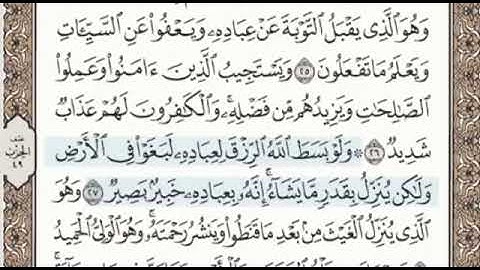 وَهُوَ ٱلَّذِى يَقْبَلُ ٱلتَّوْبَةَ عَنْ عِبَادِهِۦ وَيَعْفُوا۟ عَنِ ٱلسَّيِّـَٔاتِ
وَيَعْلَمُ مَا تَفْعَلُونَ ٢٥ وَيَسْتَجِيبُ ٱلَّذِينَ ءَامَنُوا۟ وَعَمِلُوا۟
ٱلصَّـٰلِحَـٰتِ وَيَزِيدُهُم مِّن فَضْلِهِۦ ۚ وَٱلْكَـٰفِرُونَ لَهُمْ عَذَابٌ
شَدِيدٌ ٢٦ ۞ وَلَوْ بَسَطَ ٱللَّهُ ٱلرِّزْقَ لِعِبَادِهِۦ لَبَغَوْا۟ فِى ٱلْأَرْضِ
وَلَـٰكِن يُنَزِّلُ بِقَدَرٍ مَّا يَشَآءُ ۚ إِنَّهُۥ بِعِبَادِهِۦ خَبِيرٌۢ بَصِيرٌ ٢٧ وَهُوَ
ٱلَّذِى يُنَزِّلُ ٱلْغَيْثَ مِنۢ بَعْدِ مَا قَنَطُوا۟ وَيَنشُرُ رَحْمَتَهُۥ ۚ وَهُوَ ٱلْوَلِىُّ ٱلْحَمِيدُ
الحزب
٤٩